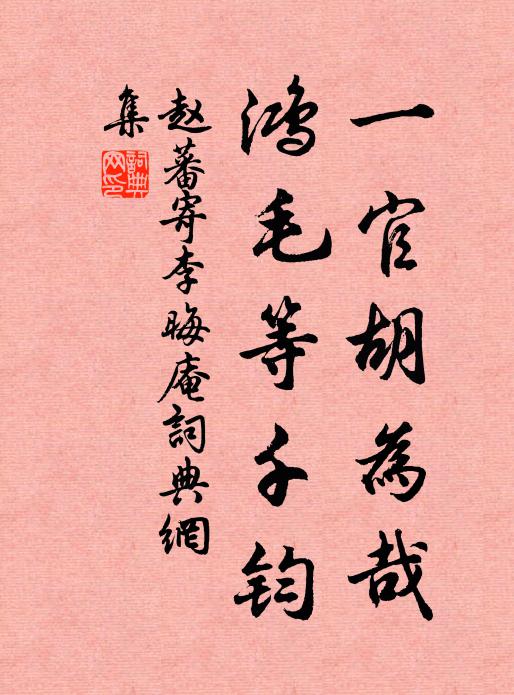 一官胡為哉
鸿毛等千钧
赵蕃寄李晦庵詞典網
集
詞典网印